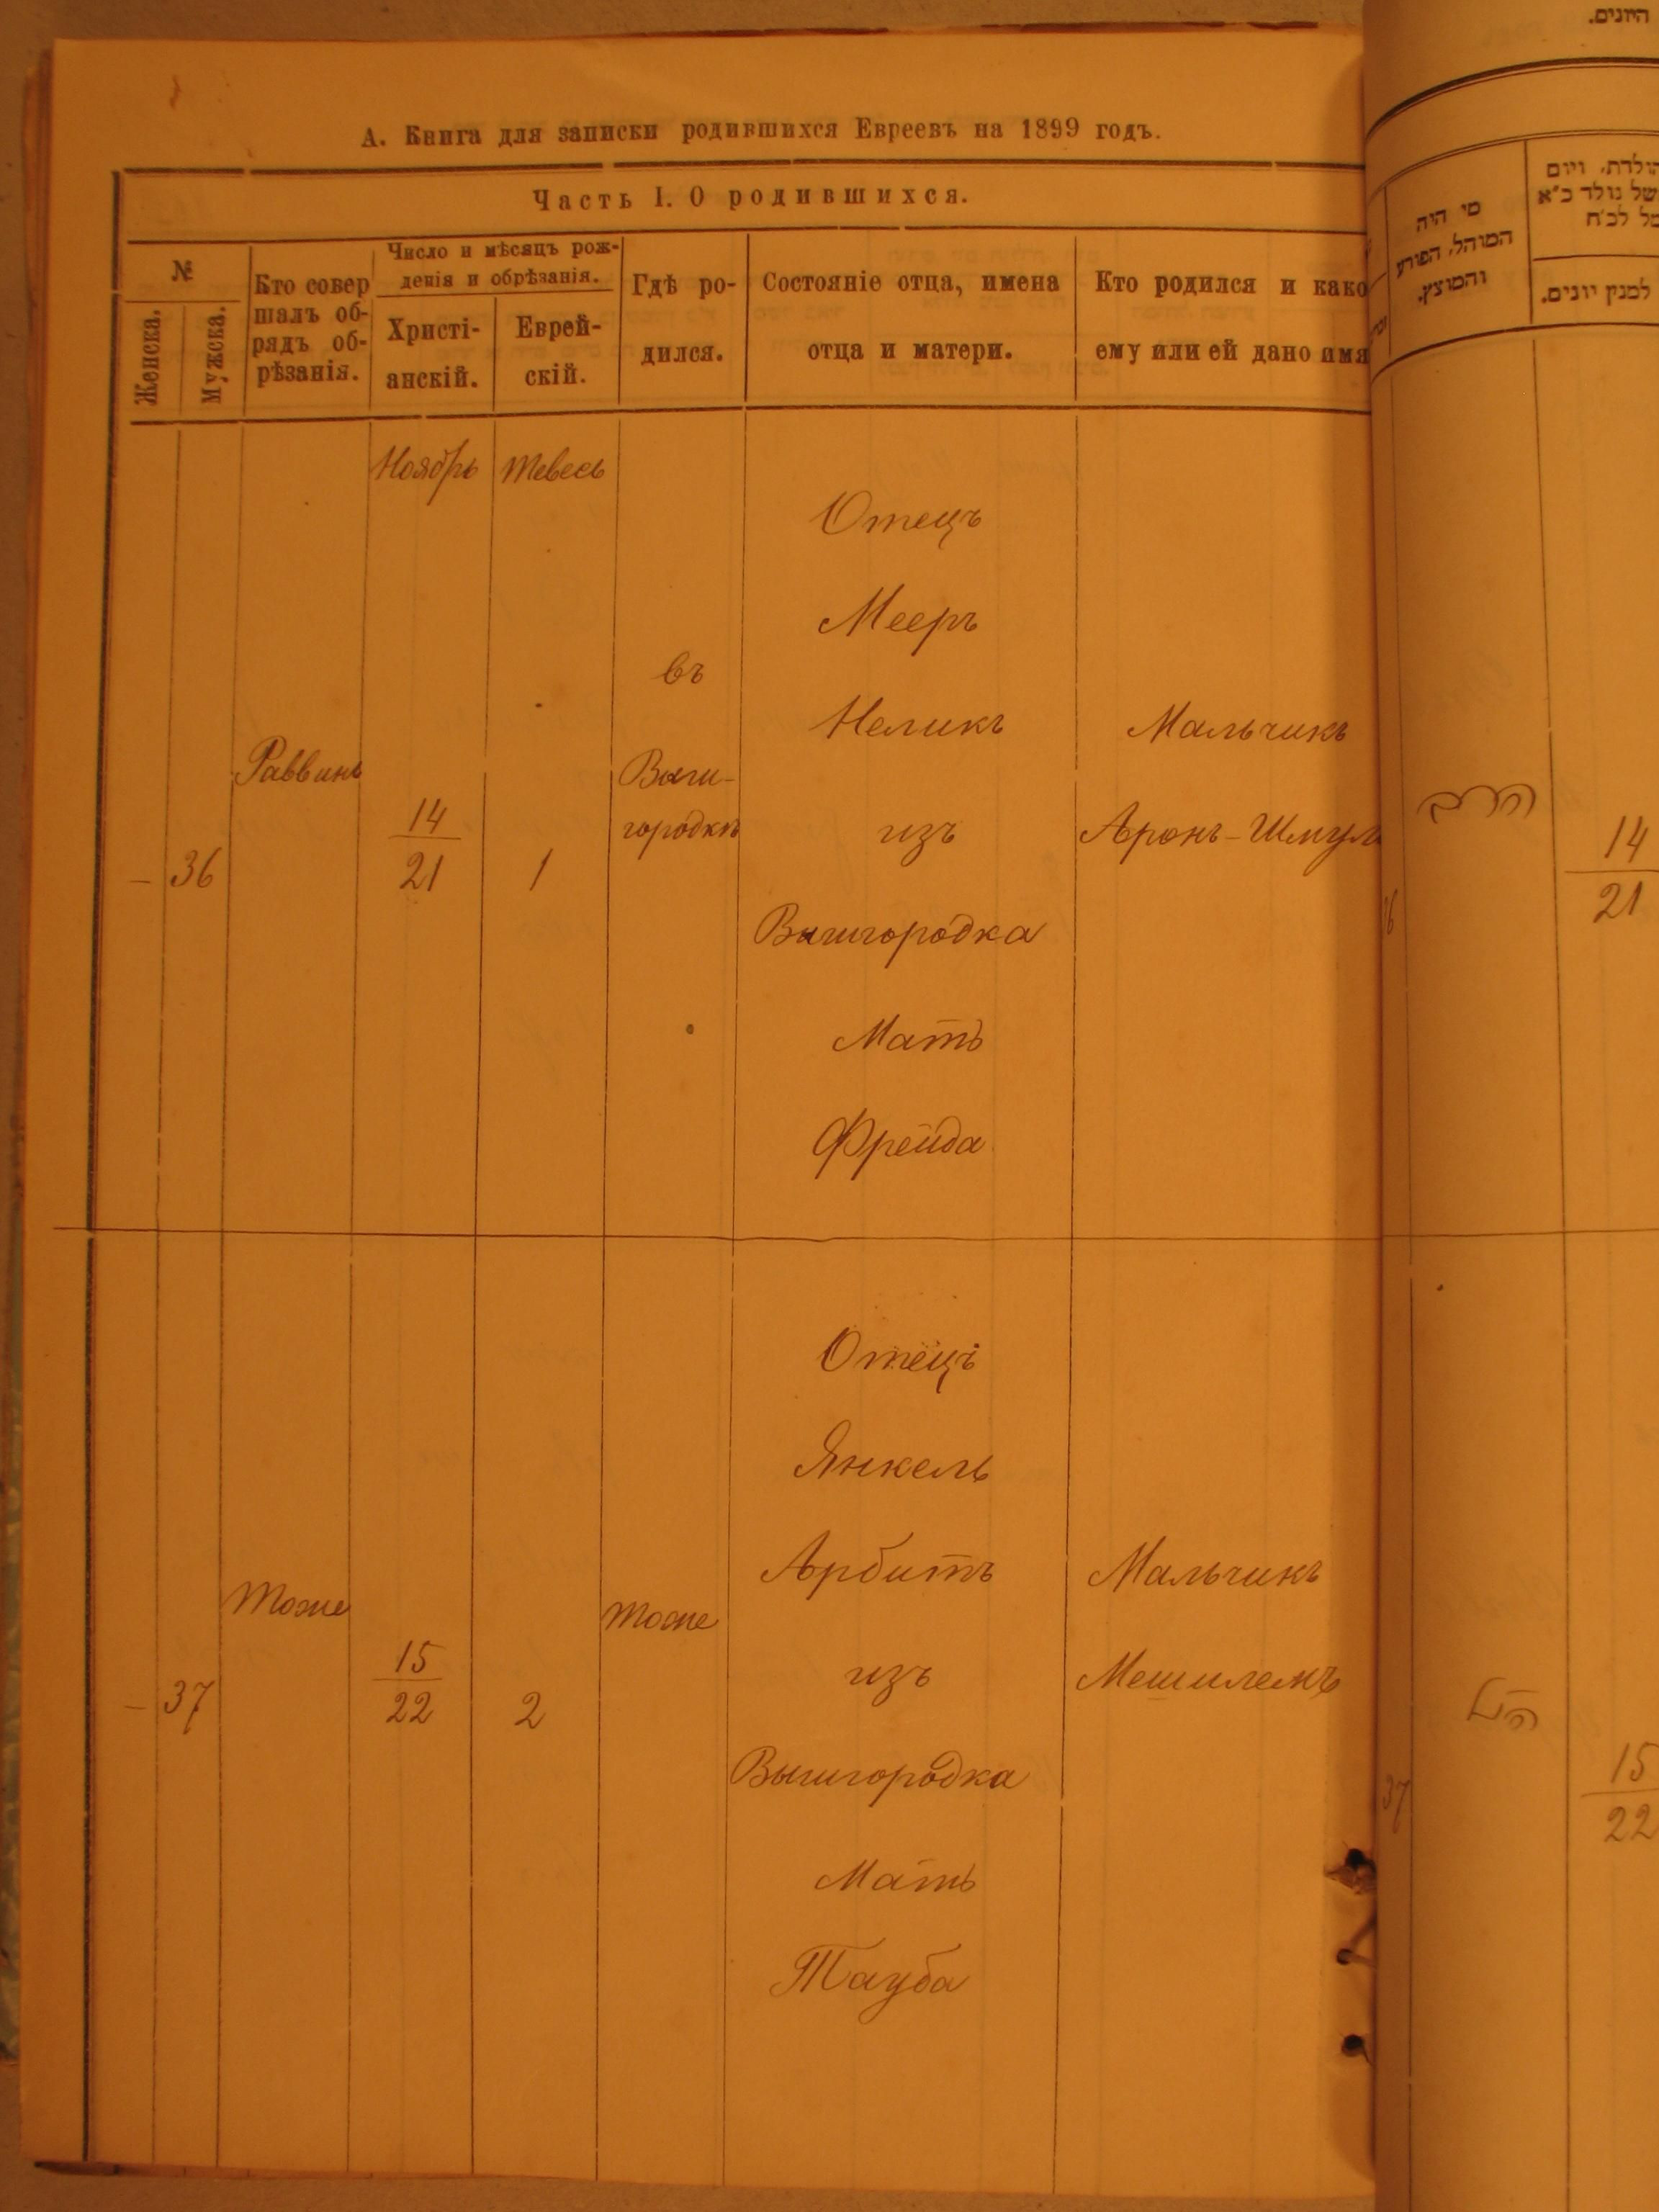 А. Книга для записки родившихся Евреевъ на 1899 годъ.
Часть I. О родившихся.
№
Женска.
Мужска.
Кто совер
шалъ об-
рядъ об-
рѣзанія.
Число и мѣсяцъ рож-
денія и обрѣзанія.
Христі-
анскій.
Еврей-
скій.
Гдѣ ро-
дился.
Состояніе отца, имена
отца и матери.
Кто родился и како
ему или ей дано имя
Ноябрь
Тевесь
–
36
Раввинъ
14
21
1
въ
Выш-
городкѣ
Отецъ
Мееръ
Неликъ
изъ
Вышгородка
Мать
Фрейда
Мальчикъ
Аронъ-Шмул
–
37
Тоже
15
22
2
тоже
Отецъ
Янкель
Арбитъ
изъ
Вышгородка
Мать
Тауба
Мальчикъ
Мешилемъ
היונים.
מי היה
המוהל, הפורע
והמוצץ.
הולדת, ויום
של נולד ב״א
למנין יונים.
הרב
14
21
37
15
22